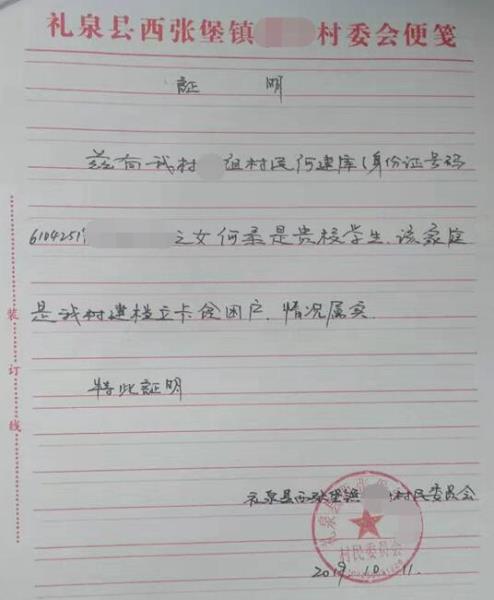 礼泉县西张堡镇 村委会便笺
証 明
兹有我村 组村民何建库(身份证号码
6104251 之女何柔是贵校学生.该家庭
是我村建档立卡贫困户.情况属实.
特此証明
礼泉县西张堡镇 村民委员会
2019.10.11.
装订线
礼泉县西张堡
村民委员会